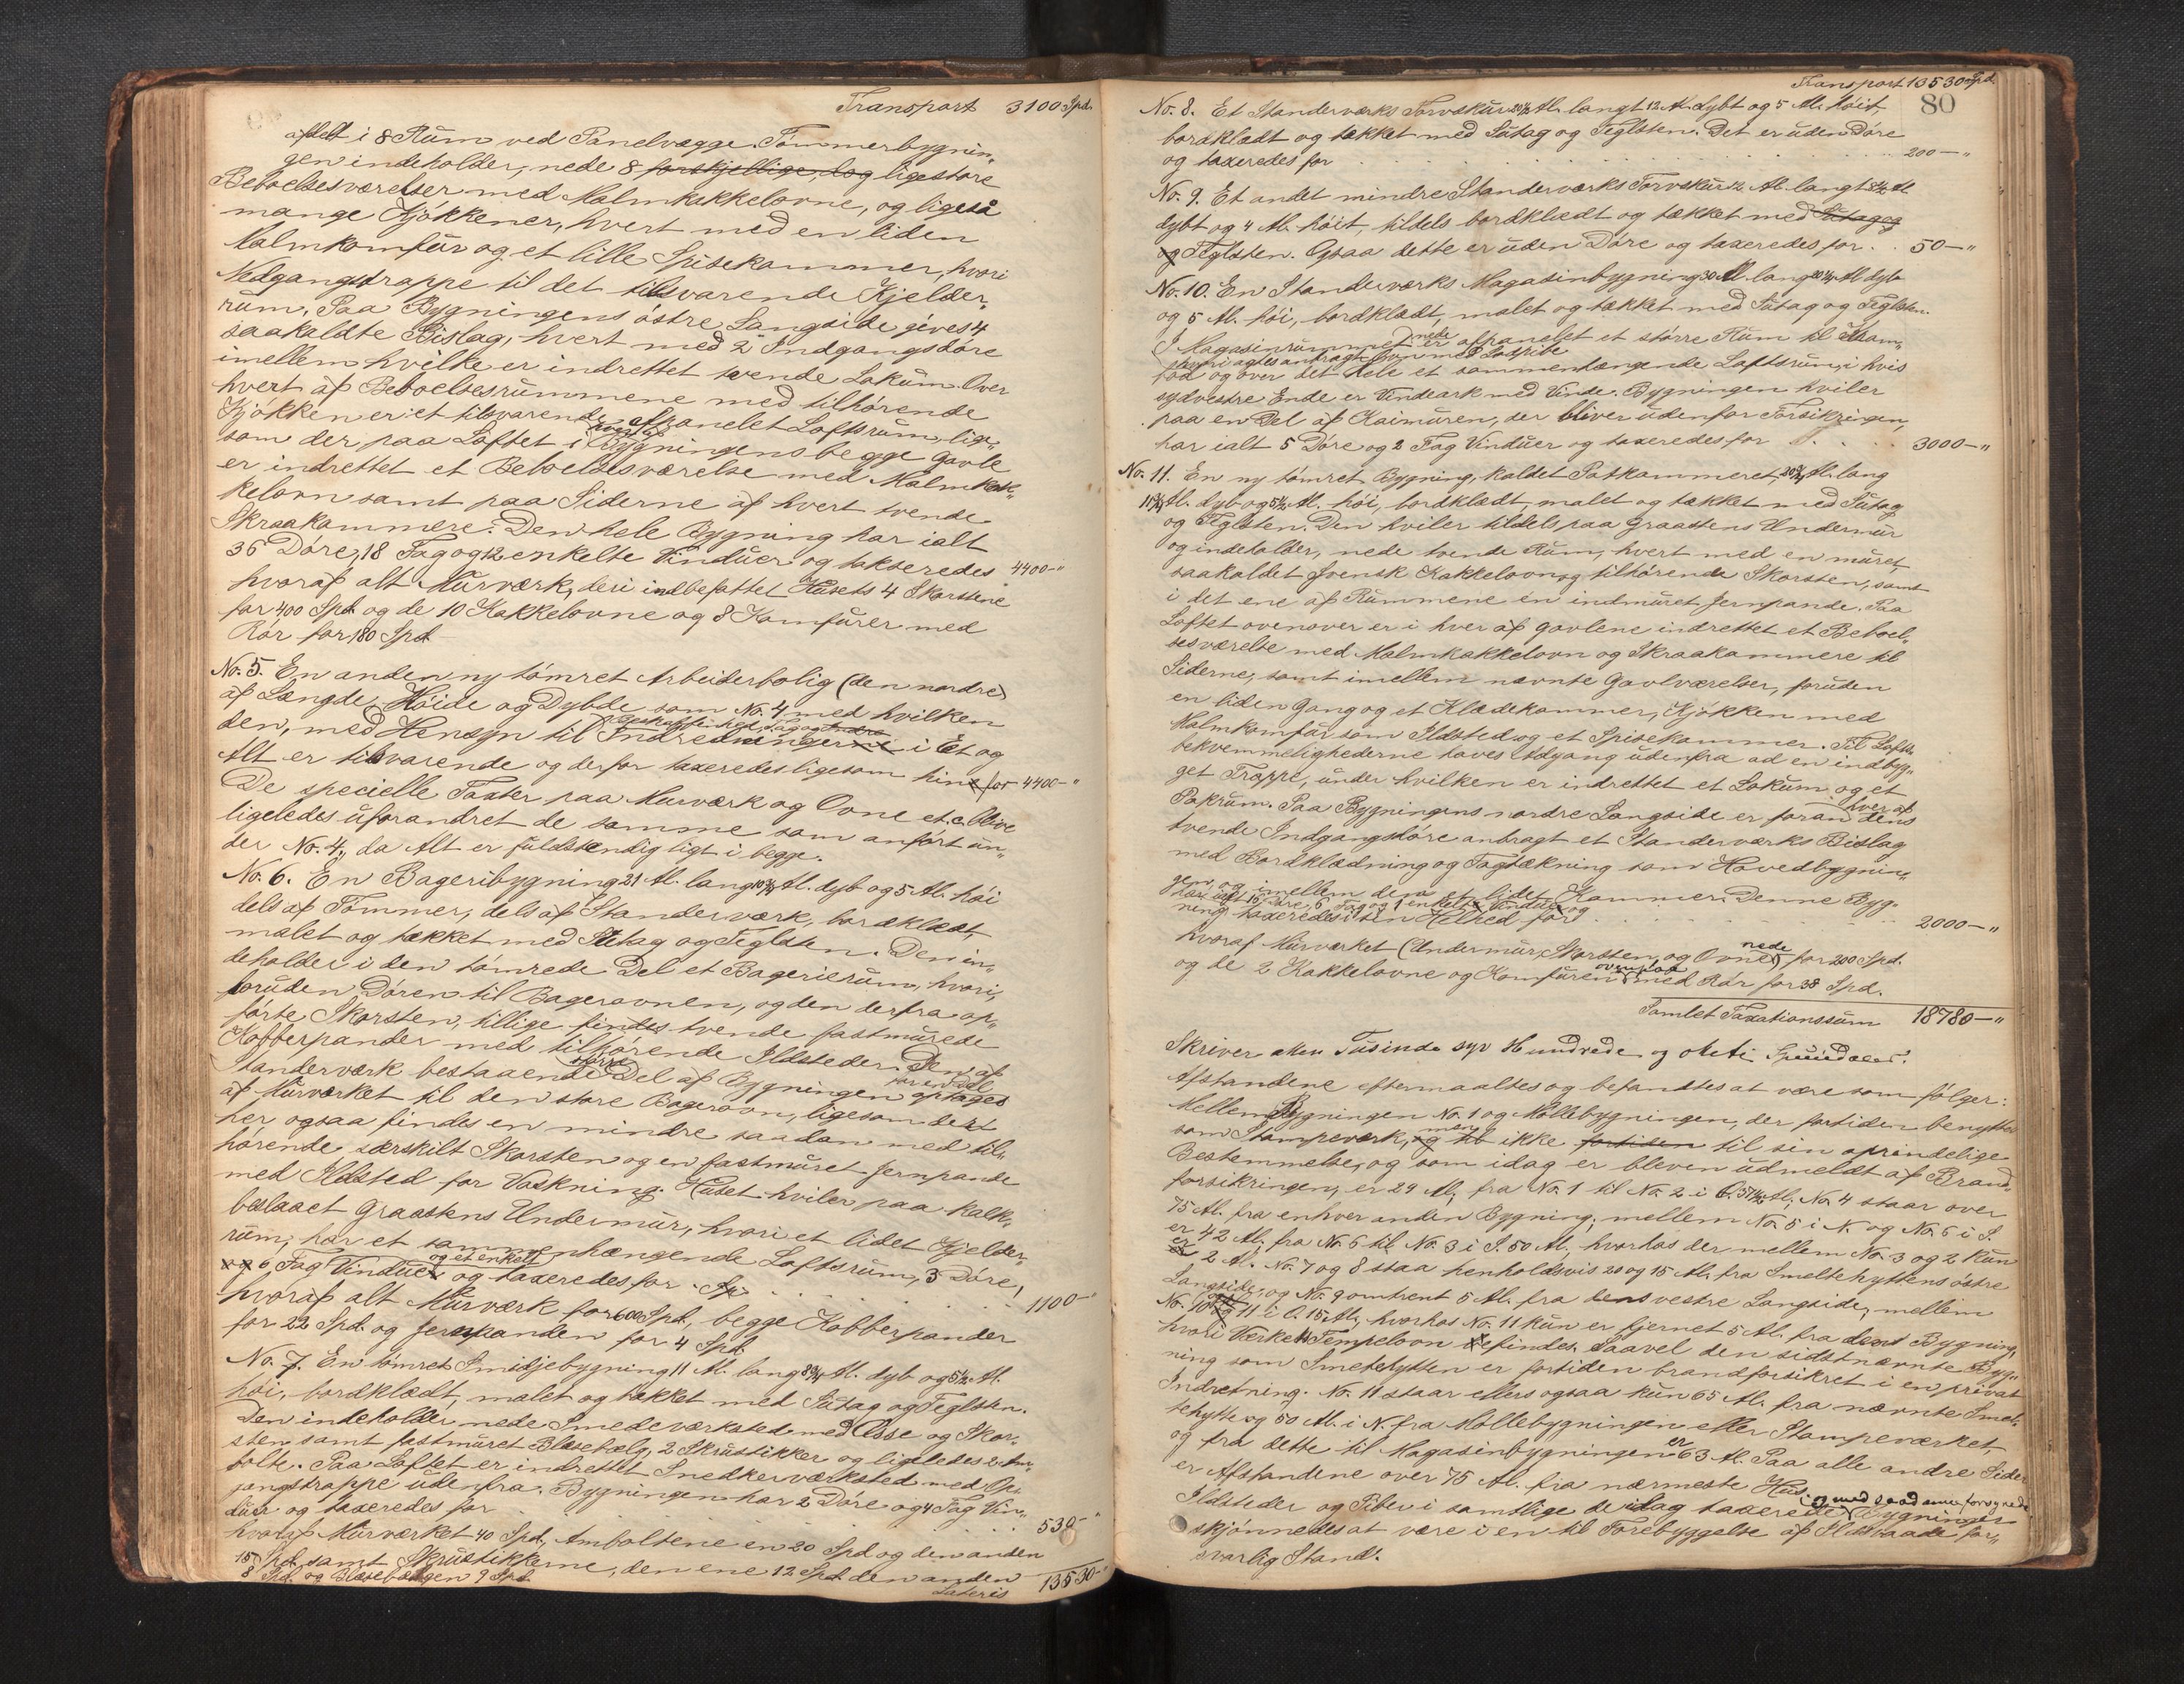 Transport 3100 Spd.
afdelt i 8 Rum ved Panelvægge. Tømmerbygnin„
gen indeholder, nede 8 forskjellige, dog ligestore
Beboelsesværelser med Malmkakkelovne, og ligesaa
mange Kjøkkener, hvert med en liden
Malmkomfur og et lille Spisekammer, hvori
Nedgangstrappe til det tilsvarende Kjelder„
rum. Paa Bygningens østre Langside gives 4
saakaldte Bislag, hvert med 2 Indgangsdøre
imellem hvilke er indrettet tvende Lokum. Over
hvert af Beboelsesrummene med tilhørende
Kjøkken er et tilsvarende afpanelet Loftsrum, lige„
som der paa Loftet i hver af Bygningens begge Gavle
er indrettet et Beboelsesværelse med Malmkak„
kelovn samt paa Siderne af hvert tvende
Skraakammere. Den hele Bygning har ialt
36 Døre, 18 Fag og 12 enkelte Vinduer og takseredes 4400-"
hvoraf alt Murværk, deri indbefattet Husets 4 Skorstene
for 400 Spd. og de 10 Kakkelovne og 8 Komfurer med
Rør for 180 Spd.
No. 5. En anden ny tømret Arbeiderbolig (den nordre)
af Længde, Høide og Dybde som No. 4 med hvilken
den, med Hensyn til Beskaffenhed, Fag og Indredningerne i Et og
Alt er tilsvarende og derfor taxeredes ligesom hin for 4400-"
De specielle Taxter paa Murværk og Ovne etc. blive
ligeledes uforandret de samme som anført un„
der No. 4, da Alt er fuldstændig ligt i begge.
No. 6. En Bageribygning 21 Al. lang 10 3/4 Al. dyb og 5 Al. høi
dels af Tømmer, dels af Standerværk, bordklædt,
malet og tækket med Sutag og Teglsten. Den in„
deholder i den tømrede Del et Bagerierum, hvori,
foruden Døren til Bagerovnen, og den derfra op„
førte Skorsten, tillige findes tvende fastmurede
Kobberpander med tilhørende Ildsteder. Den af
Standerværk bestaaende større Del af Bygningen optages for en Del
af Murværket til den store Bagerovn, ligesom der
her ogsaa findes en mindre saadan med til„
hørende særskilt Skorsten og en fastmuret Jernpande
med Ildsted for Vaskning. Huset hviler paa kalk„
beslaaet Graastens Undermur, hvori et lidet Kjelder„
rum, har et sammenhængende Loftsrum, 3 Døre,
og 6 Fag og et enkelt Vinduer og taxeredes for . . . 1100-"
hvoraf alt Murværk for 600 Spd, begge Kobberpander
for 22 Spd. og Jernpanden for 4 Spd.
No. 7. En tømret Smidjebygning 11 Al. lang 8 3/4 Al. dyb og 5 1/2 Al.
høi, bordklædt, malet og tækket med Sutag og Teglsten.
Den indeholder nede Smedeværksted med Esse og Skor„
sten samt fastmuret Blæsebælg, 2 Skrustikker og ligeledes 2 Am„
bolte. Paa Loftet er indrettet Snedkerværksted med Op„
gangstrappe udenfra. Bygningen har 2 Døre og 4 Fag Vin„
duer og taxeredes for . . . 530-"
hvoraf Murværket 40 Spd., Amboltene en 20 Spd og den anden
15 Spd, samt Skrustikkerne, den ene 12 Spd. den anden
8 Spd. og Blæsebælgen 9 Spd.
Lateris 13530-"
Transport 13530 Spd.
80
No. 8. Et Standerværks Torvskur 20 1/2 Al. langt 12 Al. dybt og 5 Al. høit,
bordklædt og tækket med Sutag og Teglsten. Det er uden Døre
og taxeredes for . . . 200-"
No. 9. Et andet mindre Standerværks Torvskur 12 Al. langt 8 1/2 Al
dybt og 4 Al. høit, tildels bordklædt og tækket med Sutag og
og Teglsten. Ogsaa dette er uden Døre og taxeredes for . . 50-"
No. 10. En Standerværks Magasinbygning 30 Al. lang 20 1/4 Al dyb
og 5 Al. høi, bordklædt, malet og tækket med Sutag og Teglsten.
I Magasinrummet nede er afpanelet et større Rum til
hvori agtes anbragt Ovn med Ladpibe
og over det Hele et sammenhængende Loftsrum, i hvis
sydvestre Ende er Vindeark med Vinde. Bygningen hviler
paa en Del af Kaimuren, der bliver udenfor Forsikringen,
har ialt 5 Døre og 2 Fag Vinduer og taxeredes for . . . 3000-"
No. 11. En ny tømret Bygning, kaldet Potkammeret, 20 3/4 Al. lang
11 3/4 Al. dyb og 5 1/2 Al. høi, bordklædt, malet og tækket med Sutag
og Teglsten. Den hviler tildels paa Graastens Undermur
og indeholder, nede tvende Rum, hvert med en muret
saakaldet Svensk Kakkelovn og tilhørende Skorsten, samt
i det ene af Rummene en indmuret Jernpande. Paa
Loftet ovenover er i hver af Gavlene indrettet et Beboel„
sesværelse med Malmkakkelovn og Skraakammere til
Siderne, samt imellem nævnte Gavlværelser, foruden
en liden Gang og et Klædekammer, Kjøkken med
Malmkomfur som Ildsted og et Spisekammer. Til Lofts„
bekvemmelighederne haves Adgang udenfra ad en indbyg„
get Trappe, under hvilken er indrettet et Lokum og et
Pakrum. Paa Bygningens nordre Langside er foran hver af dens
tvende Indgangsdøre anbragt et Standerværks Bislag
med Bordklædning og Tagtækning som Hovedbygnin„
gen og imellem dem et lidet Kammer. Denne Byg„
har ialt 15 Døre, 6 Fag og 1 enkelt Vinduer og
ning taxeredes i sin Helhed for . . . 2000-"
hvoraf Murværket (Undermur, Skorsten, og Ovne nede) for 200 Spd.
og de 2 Kakkelovne og Komfuren ovenpaa med Rør for 38 Spd.
Samlet Taxationssum 18780-"
Skriver atten Tusinde syv Hundrede og otteti Speciedaler.
Afstandene eftermaaltes og befandtes at være som følger:
Mellem Bygningen No. 1 og Møllebygningen, der fortiden benyttes
som Stampeværk, og til men ikke fortiden til sin oprindelige
Bestemmelse, og som idag er bleven udmeldt af Brand„
forsikringen, er 29 Al, fra No. 1 til No. 2 i Ø. 57 1/2 Al, No. 4 staar over
75 Al. fra enhver anden Bygning, mellem No. 5 i N. og No. 6 i S.
er 42 Al. fra No. 6 til No. 3 i S. 50 Al., hvorhos der mellem No. 3 og 2 kun
er 2 Al. No. 7 og 8 staa henholdsvis 20 og 15 Al. fra Smeltehyttens østre
Langside, og No. 9 omtrent 5 Al. fra dens vestre Langside, mellem
No. 10 og 11 i Ø. 15 Al., hvorhos No. 11 kun er fjernet 5 Al. fra den Bygning,
hvori Værkets Tempelovn befindes. Saavel den sidstnævnte Byg„
ning som Smeltehytten er fortiden brandforsikret i en privat
Indretning. No. 11 staar ellers ogsaa kun 65 Al. fra nævnte Smel„
tehytte og 50 Al. i N. fra Møllebygningen eller Stampeværket
og fra dette til Magasinbygningen er 63 Al. Paa alle andre Sider
er Afstandene over 75 Al. fra nærmeste Hus.
Ildsteder og Piber i samtlige de idag taxerede og med saadanne forsynede Bygninger
skjønnedes at være i en til Forebyggelse af Ildsvaade for„
svarlig Stand.